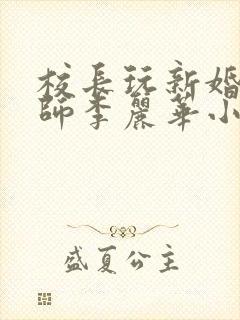 校長玩新婚
師李麗華小
盛夏公主